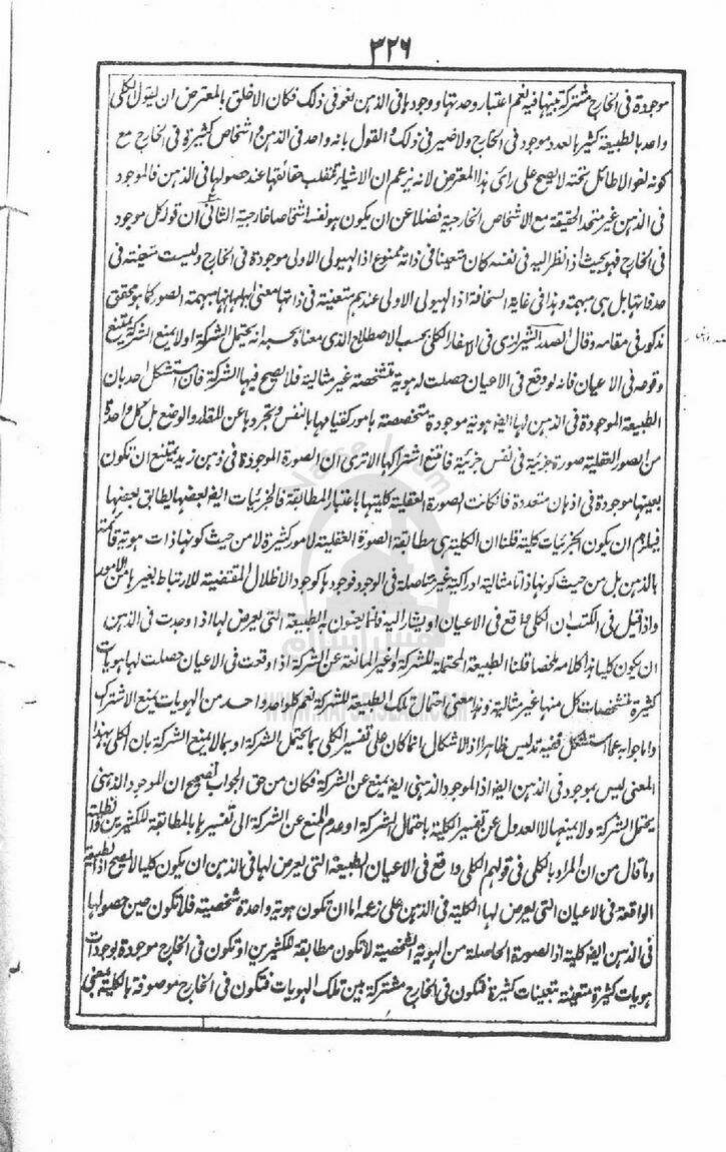 ٣٢٦
موجودة فى الخارج مشتركة بينها فيه نعم اعتبار وحدتها ووجودها فى الذهن لغو فى ذلك فكان الاخلق بالمعترض ان يقول الكلى
واحد بالطبيعة كثير بالعدد موجود فى الخارج ولا ضير فى ذلك والقول بانه واحد فى الذهن واشخاص كثيرة فى الخارج مع
كونه لغوا لا طائل تحته لا يصح على راى هذا المعترض لانه يزعم ان الاشياء تنقلب حقائقها عند حصولها فى الذهن فالموجود
فى الذهن غير متحد الحقيقة مع الاشخاص الخارجية فضلا عن ان يكون هو نفسه اشخاصا خارجية الثانى ان قوله كل موجود
فى الخارج فهو بحيث اذا نظر اليه فى نفسه كان متعينا فى ذاته ممنوع اذ الهيولى الاولى موجودة فى الخارج وليست متعينة فى
حد ذاتها بل هى مبهمة وهذا فى غاية السخافة اذ الهيولى الاولى عندهم متعينة فى ذاتها معنى ابهامها انها مبهمة الصور كما هو محقق
مذكور فى مقامه وقال الصدر الشيرازى فى الاسفار الكلى بحسب الاصطلاح الذى معناه بحسبه انه يحتمل الشركة او لا يمنع الشركة يمتنع
وقوعه فى الاعيان فانه لو وقع فى الاعيان حصلت له هوية متشخصة غير مثالية فلا يصح فيها الشركة فان استشكل احد بان
الطبيعة الموجودة فى الذهن لها ايضا هوية موجودة متخصصة بامور كقيامها بالنفس وتجردها عن المقدار والوضع بل كل واحدة
من الصور العقلية صورة جزئية فى نفس جزئية فامتنع اشتراكها الا ترى ان الصورة الموجودة فى ذهن زيد يمتنع ان تكون
بعينها موجودة فى اذهان متعددة فانكانت الصورة العقلية كليتها باعتبار المطابقة فالجزئيات ايضا بعضها يطابق بعضها
فيلزم ان يكون الجزئيات كلية قلنا ان الكلية هى مطابقة الصورة العقلية لامور كثيرة لا من حيث كونها ذات هوية قائمة
بالذهن بل من حيث كونها ذاتا مثالية ادراكية غير متاصلة فى الوجود فوجودها كوجود الاظلال المقتضية للارتباط بغيرها من الامور
واذا قيل فى الكتب ان الكلى واقع فى الاعيان او يشار اليه فانما يعنون به الطبيعة التى يعرض لها اذا وجدت فى الذهن
ان يكون كليا هذا كلامه ملخصا قلنا الطبيعة المحتملة للشركة او غير المانعة عن الشركة اذا وقعت فى الاعيان حصلت لها هويات
كثيرة متشخصات كل منها غير مثالية وهذا معنى احتمال تلك الطبيعة للشركة نعم كل واحد واحد من الهويات يمنع الاشتراك
واما جوابه عما استشكل ففيه تدليس ظاهر اذ الاشكال انما كان على تفسير الكلى بما يحتمل الشركة او بما لا يمنع الشركة بان الكلى بهذا
المعنى ليس بموجود فى الذهن ايضا اذ الموجود الذهنى ايضا يمنع عن الشركة فكان من حق الجواب تصحيح ان الموجود الذهنى
يحتمل الشركة ولا يمنعها لا العدول عن تفسير الكلية باحتمال الشركة او عدم المنع عن الشركة الى تفسيرها بالمطابقة للكثيرين والظلية
وما قال من ان المراد بالكلى فى قولهم الكلى واقع فى الاعيان الطبيعة التى يعرض لها فى الذهن ان يكون كليا لا يصح اذ الطبيعة
الواقعة فى الاعيان التى يعرض لها الكلية فى الذهن على زعمه اما ان تكون هوية واحدة شخصية فلا تكون حين حصولها
فى الذهن ايضا كلية اذ الصورة الحاصلة من الهوية الشخصية لا تكون مطابقة للكثيرين او تكون فى الخارج موجودة بوجودات
هويات كثيرة متعينة تعينات كثيرة فتكون فى الخارج مشتركة بين تلك الهويات فتكون فى الخارج موصوفة بالكلية بمعنى